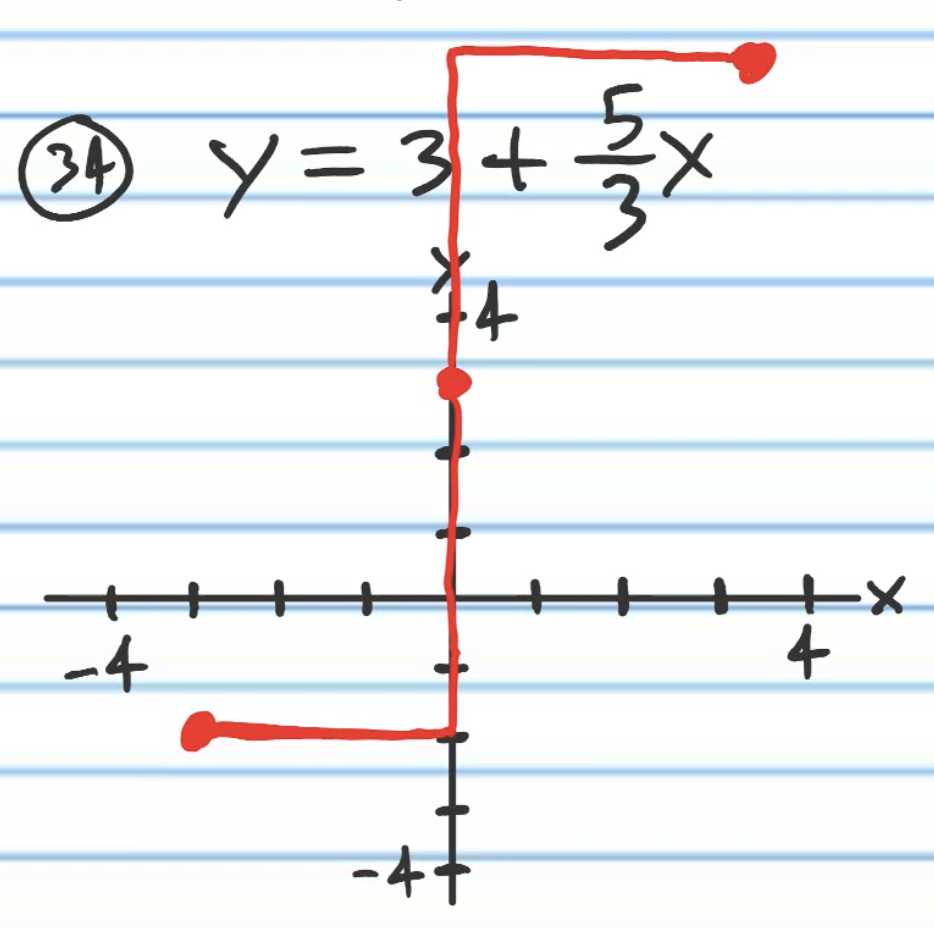 34 y = 3 + 5/3 x
y
4
x
-4
4
-4